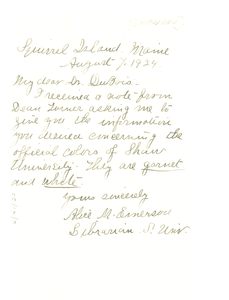 Squirrel Island, Maine
August 7, 1929.
My dear Dr. DuBois.
I received a note from
Dean Turner asking me to
give you the information
you desired concerning the
official colors of Shaw
University. They are garnet
and white
Yours sincerely
Alice M. Emerson
Librarian S. Univ.